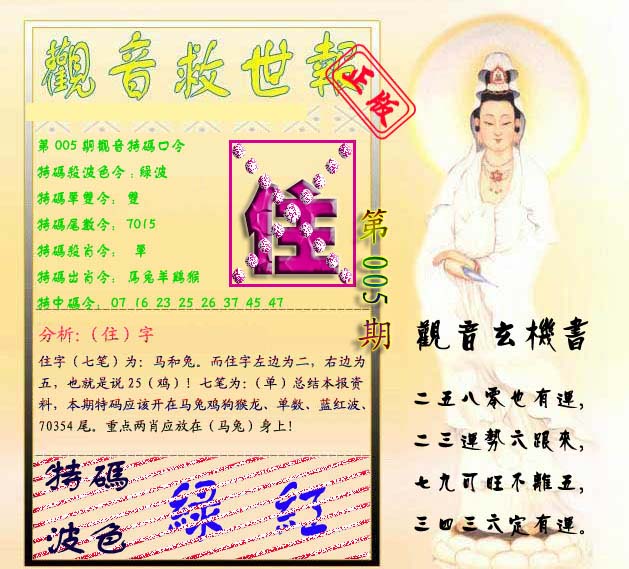 觀音救世報
正版
第005期觀音特碼口令
特碼殺波色令:綠波
特碼單雙令: 雙
特碼尾數令: 7015
特碼殺肖令: 單
特碼出肖令: 馬兔羊鷄猴
特中碼令: 07 16 23 25 26 37 45 47
住
第005期
分析:(住)字
住字(七笔)为:马和兔。而住字左边为二,右边为
五,也就是说25(鸡)!七笔为:(单)总结本报资
料,本期特码应该开在马兔鸡狗猴龙、单数、蓝红波、
70354尾。重点两肖应放在(马兔)身上!
特碼
波色
綠 紅
觀音玄機書
二五八零也有運,
二三運勢六跟來,
七九可旺不離五,
三四三六定有運。